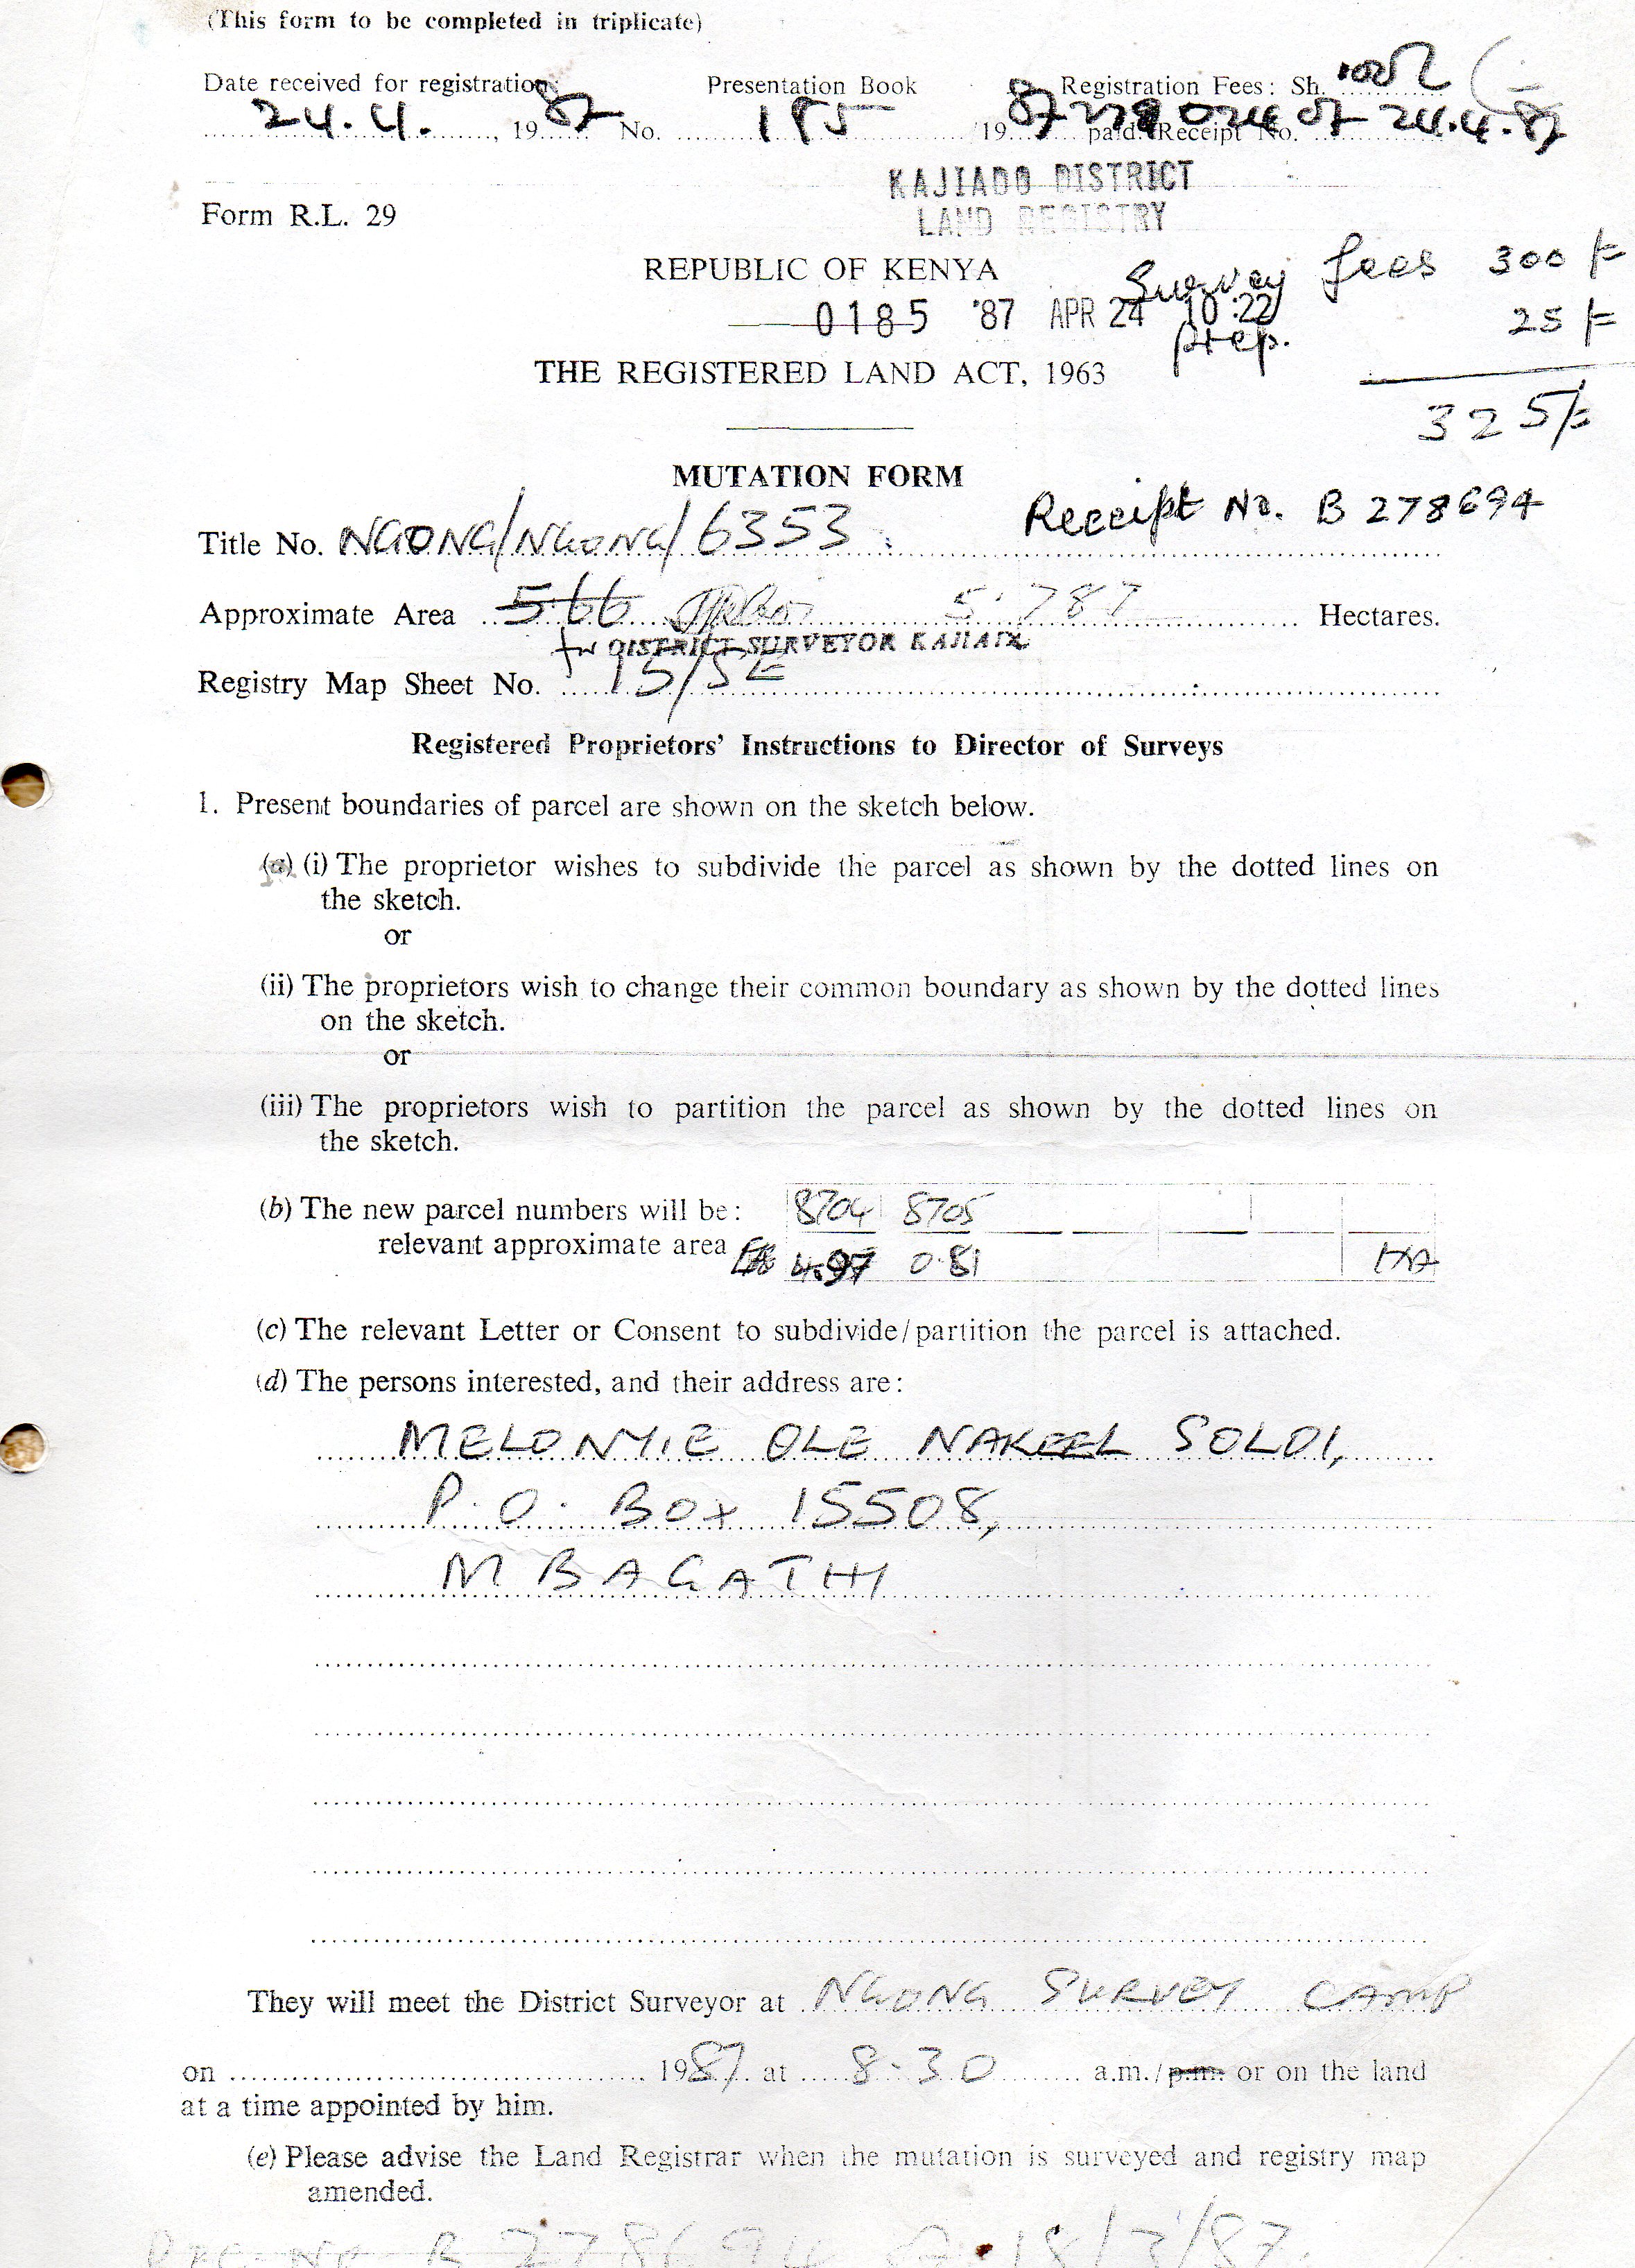 (This form to be completed in triplicate)
Date received for registration: Presentation Book Registration Fees: Sh.
24.4. , 1987 No. 185 /1987 paid. Receipt No. of 24.4.87
KAJIADO DISTRICT
LAND REGISTRY
Form R.L. 29
REPUBLIC OF KENYA
Survey fees 300/=
0185 '87 APR 24 10:22
prep. 25/=
THE REGISTERED LAND ACT, 1963
325/=
MUTATION FORM
Receipt No. B 278694
Title No. NGONG/NGONG/6353
Approximate Area 5.66 5.787 Hectares.
DISTRICT SURVEYOR KAJIADO
Registry Map Sheet No. 15/SE
Registered Proprietors' Instructions to Director of Surveys
1. Present boundaries of parcel are shown on the sketch below.
(a) (i) The proprietor wishes to subdivide the parcel as shown by the dotted lines on
the sketch.
or
(ii) The proprietors wish to change their common boundary as shown by the dotted lines
on the sketch.
or
(iii) The proprietors wish to partition the parcel as shown by the dotted lines on
the sketch.
(b) The new parcel numbers will be: 8704 8705
relevant approximate area 4.97 0.81 HA
(c) The relevant Letter or Consent to subdivide/partition the parcel is attached.
(d) The persons interested, and their address are:
MELONYIE OLE NAKEEL SOLOI,
P.O. BOX 15508,
MBAGATHI
They will meet the District Surveyor at NGONG SURVEY CAMP
on 1987 at 8.30 a.m./p.m. or on the land
at a time appointed by him.
(e) Please advise the Land Registrar when the mutation is surveyed and registry map
amended.
REC. NO B 278694 of 18/3/87.